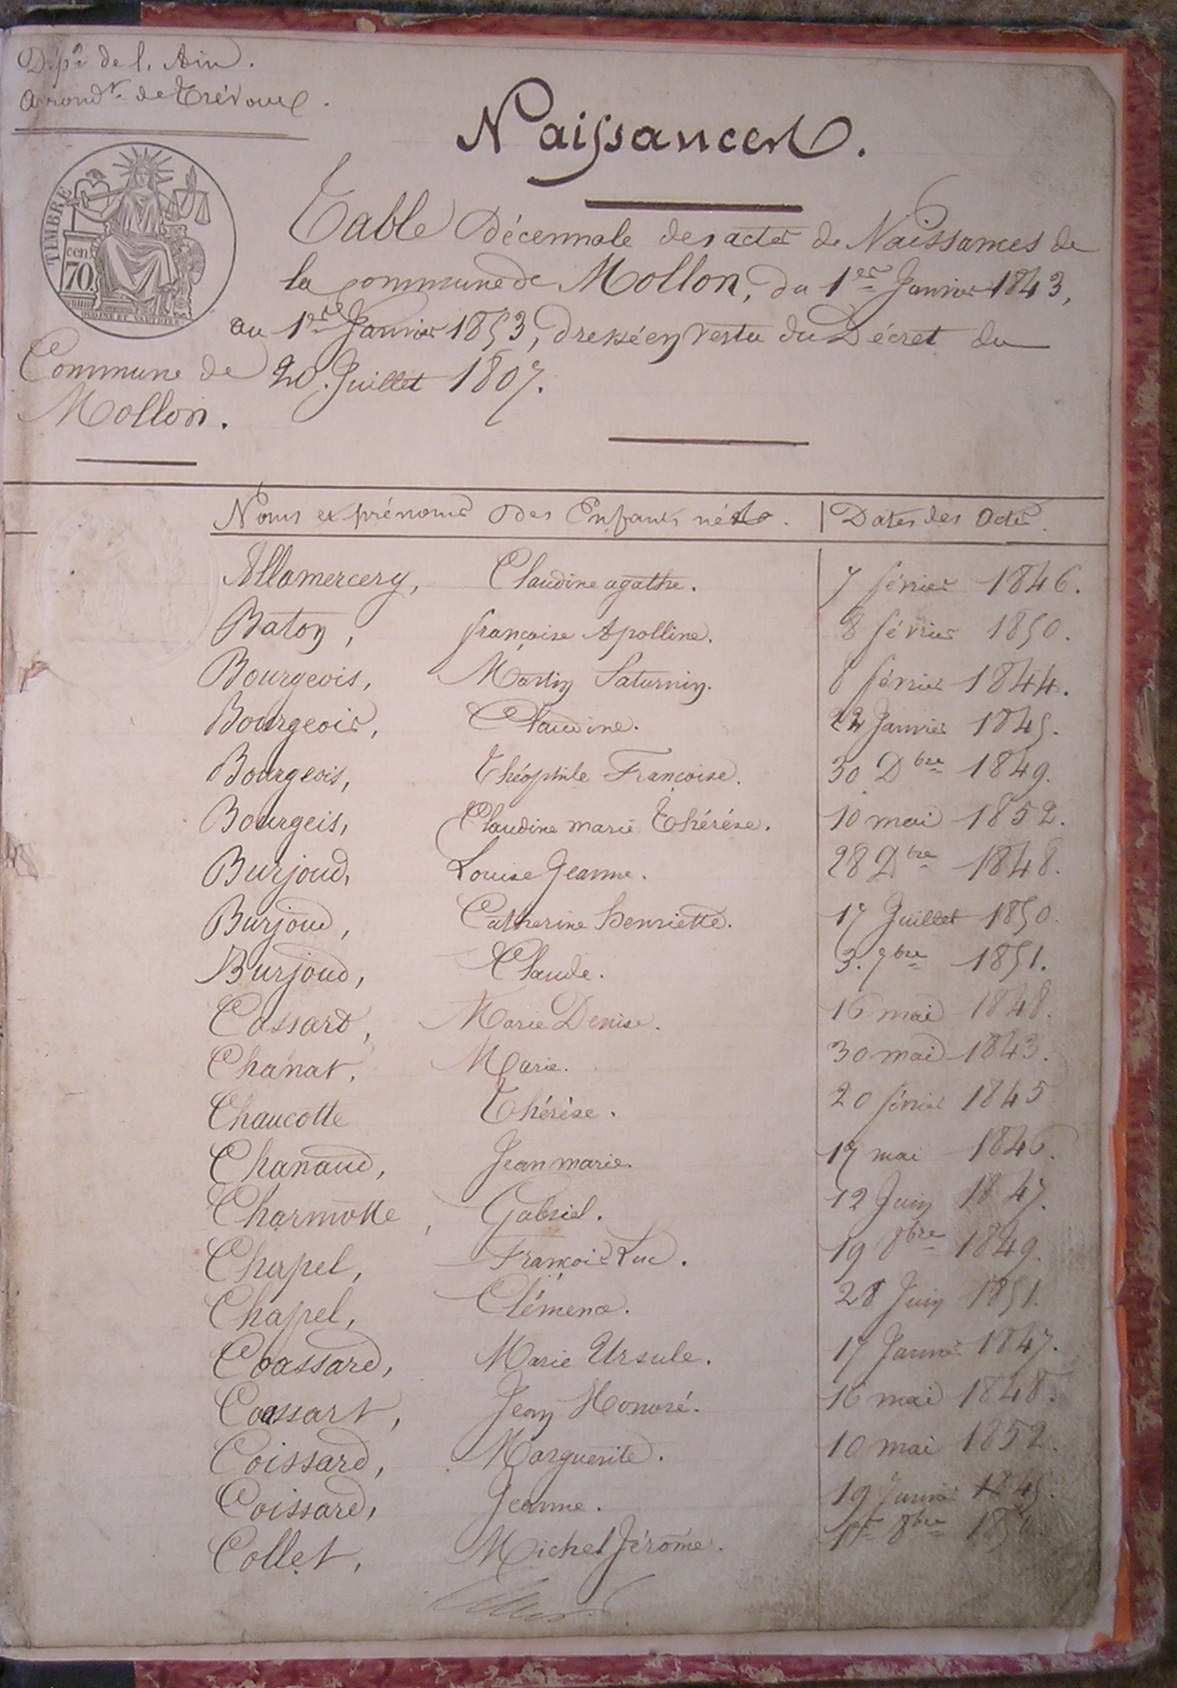 Dépt de l'Ain.
Arrondt de Trévoux.
Naissances.
TIMBRE
cent
70
Table Décennale des actes de Naissances de
la commune de Mollon, du 1er Janvier 1843,
au 1er Janvier 1853, dressée en vertu du Décret du
20 Juillet 1807.
Commune de
Mollon.
Noms et prénoms des Enfants nés. Dates des Actes
Allomercery, Claudine agathe. 7 février 1846.
Baton, françoise Apolline. 8 février 1850.
Bourgeois, Martin Saturnin. 8 février 1844.
Bourgeois, Claudine. 22 Janvier 1845.
Bourgeois, Théophile Françoise. 30 Dbre 1849.
Bourgeis, Claudine marie Thérèse. 10 mai 1852.
Burjoud, Louise Jeanne. 28 Dbre 1848.
Burjoud, Catherine henriette. 17 Juillet 1850.
Burjoud, Claude. 3. 7bre 1851.
Cassard, Marie Denise. 16 mai 1848.
Chanat, Marie. 30 mai 1843.
Chaucotte Thérèse. 20 février 1845
Chanaud, Jean marie. 17 mai 1846.
Charmotte, Gabriel. 12 Juin 1847.
Chapel, François Luc. 19 8bre 1849.
Chapel, Clémence. 28 Juin 1851.
Coassard, Marie Ursule. 17 Janvier 1847.
Coassart, Jean Honoré. 16 mai 1848.
Coissard, Marguerite. 10 mai 1852.
Coissard, Jeanne. 19 Janvier 1845.
Collet, Michel Jérôme. 1er 8bre 1850.